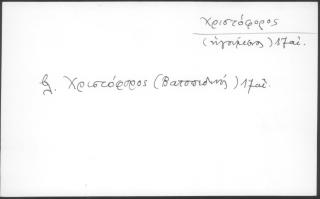 Χριστόφορος
(ἡγούμενος) 17 αἰ.
βλ. Χριστόφορος (Βατοπεδινός) 17 αἰ.